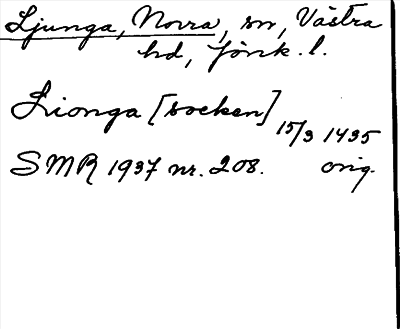 Ljunga, Norra, sn, Västra
hd, Jönk. l.
Lionga [socken]
15/3 1435
SMR 1937 nr. 208. orig.